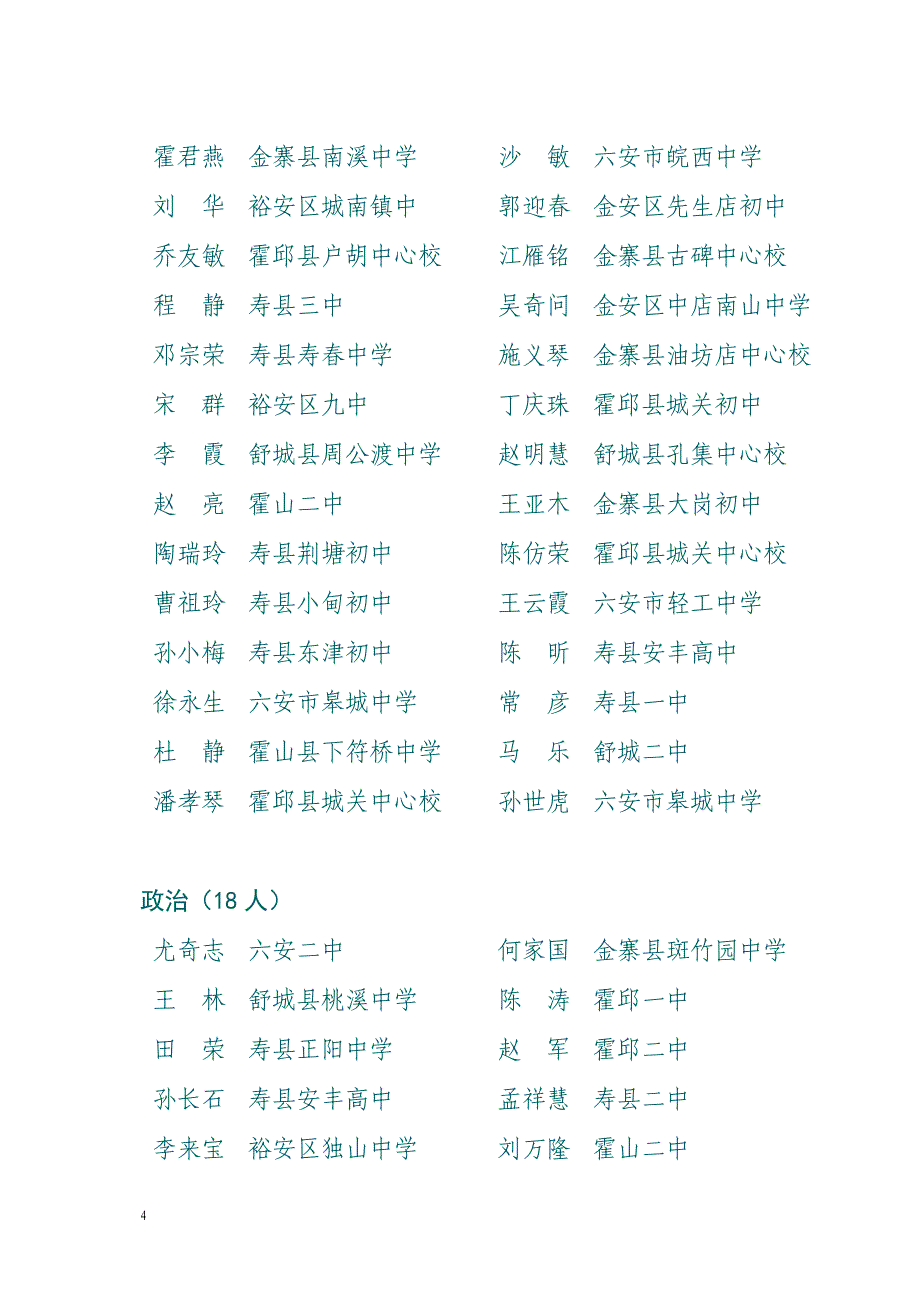 霍君燕　金寨县南溪中学　沙　敏　六安市皖西中学
刘　华　裕安区城南镇中　郭迎春　金安区先生店初中
乔友敏　霍邱县户胡中心校　江雁铭　金寨县古碑中心校
程　静　寿县三中　吴奇问　金安区中店南山中学
邓宗荣　寿县寿春中学　施义琴　金寨县油坊店中心校
宋　群　裕安区九中　丁庆珠　霍邱县城关初中
李　霞　舒城县周公渡中学　赵明慧　舒城县孔集中心校
赵　亮　霍山二中　王亚木　金寨县大岗初中
陶瑞玲　寿县荆塘初中　陈仿荣　霍邱县城关中心校
曹祖玲　寿县小甸初中　王云霞　六安市轻工中学
孙小梅　寿县东津初中　陈　昕　寿县安丰高中
徐永生　六安市皋城中学　常　彦　寿县一中
杜　静　霍山县下符桥中学　马　乐　舒城二中
潘孝琴　霍邱县城关中心校　孙世虎　六安市皋城中学
政治（18 人）
尤奇志　六安二中　何家国　金寨县斑竹园中学
王　林　舒城县桃溪中学　陈　涛　霍邱一中
田　荣　寿县正阳中学　赵　军　霍邱二中
孙长石　寿县安丰高中　孟祥慧　寿县二中
李来宝　裕安区独山中学　刘万隆　霍山二中
4